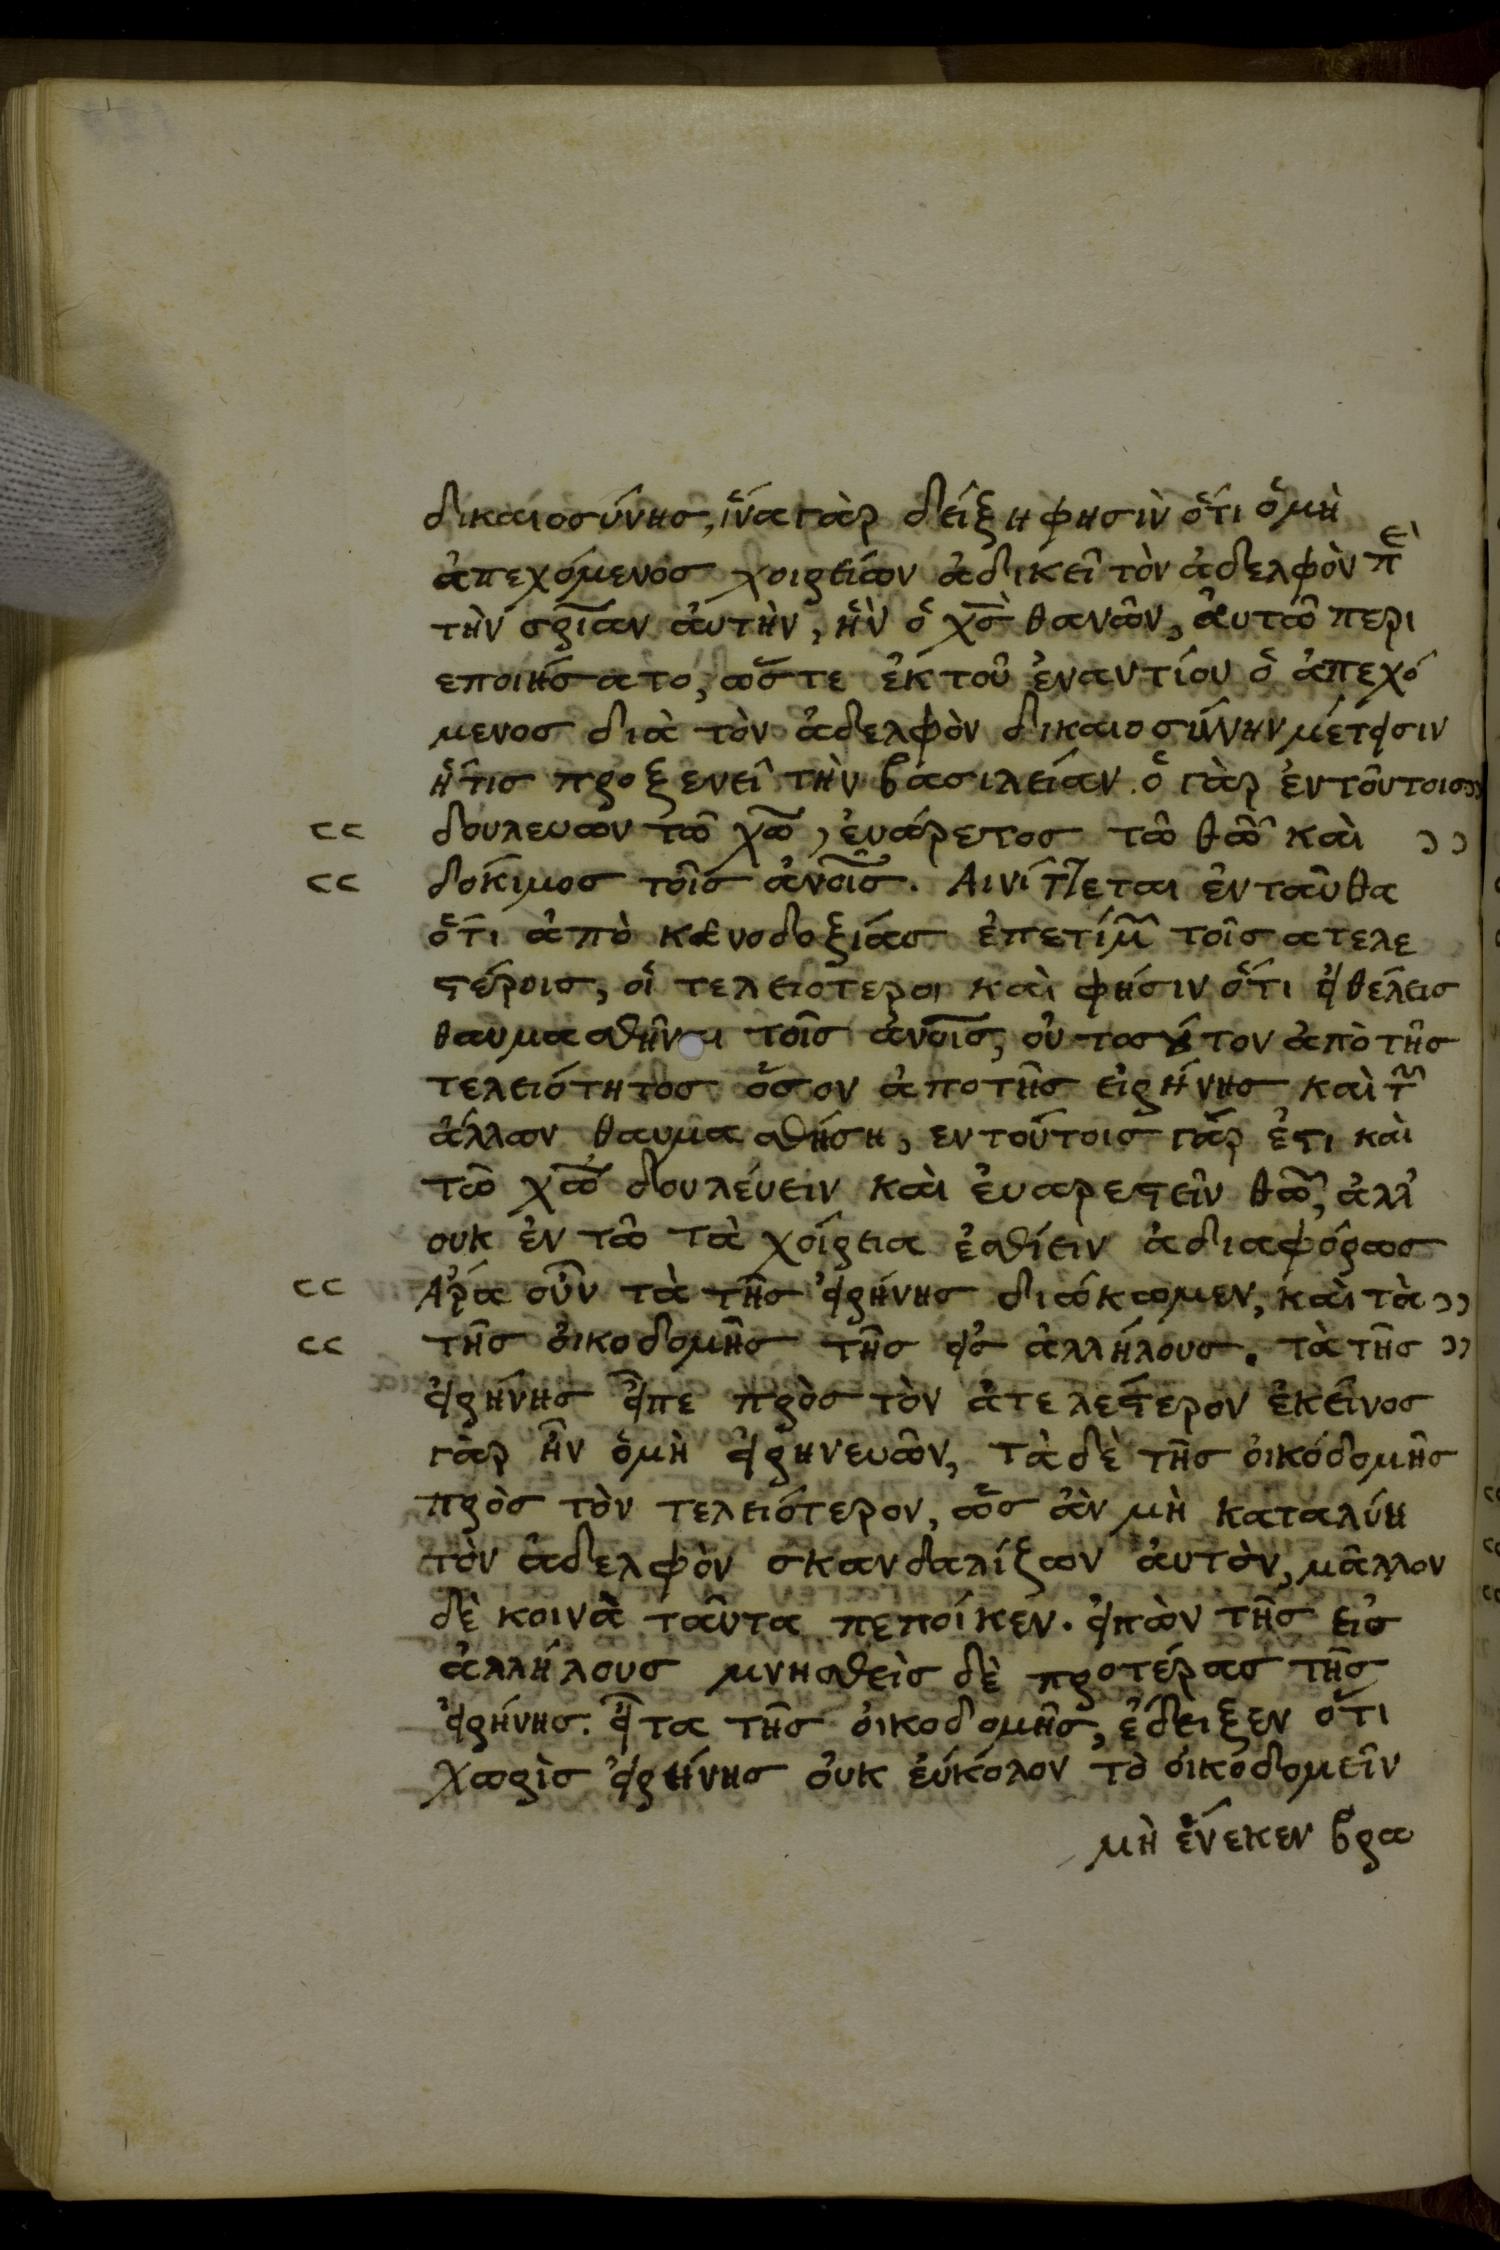 δικαιοσύνης, ἵνα γὰρ δείξη φησὶν ὅτι ὁ μὴ
ἀπεχόμενος χοιρείων ἀδικεῖ τὸν ἀδελφὸν π̅ὲ
τὴν σρ̅ίαν ἀυτὴν, ἣν ὁ χς̅ θανὼν, ἀυτῶ περι
εποιήσατο, ὥστε ἐκ τοῦ ἐναντίου ὁ ἀπεχό
μενος διὰ τὸν ἀδελφὸν δικαιοσύνην μέτεισιν
ἥτις προξενεῖ τὴν βασιλείαν. ὁ γὰρ ἐν τούτοις ͻͻ
cc δουλευων τῶ χω̅, ἐυάρετος τῶ θω̅ καὶ ͻͻ
cc δοκιμος τοῖς ἀνοις̅. Αινίττεται ἐνταῦθα
ὅτι ἀπὸ κενοδοξίας ἐπετίμ̅ τοῖς ατελε
ϛέροις, οἱ τελειοτεροι καὶ φησιν ὅτι εἰ θέλεις
θαυμασθῆναι τοῖς ἀνοις̅, οὐ τοσȣ́τον ἀπὸ τῆς
τελειότητος ὅσον ἀπο τῆς εἰρήνης καὶ τ῀
ἄλλων θαυμασθήση, εν τούτοις γάρ ἐϛι καὶ
τῶ χω̅ δουλεύειν καὶ ἐυαρεϛεῖν θω̅, ἀλλ'
ουκ ἐν τῶ τὰ χοίρεια ἐσθίειν ἀδιαφόρως
cc Αρα οὖν τὰ τῆς εἰρήνης διώκωμεν, καὶ τὰ ͻͻ
cc τῆς ὀικοδομῆς τῆς εἰς ἀλλήλους. τὰ τῆς ͻͻ
εἰρήνης εἶπε πρὸς τὸν ἀτελέϛερον ἐκεῖνος
γὰρ ἦν ὁ μὴ εἰρηνευων, τὰ δὲ τῆς ὀικοδομῆς
πρὸς τὸν τελειότερον, ὡς ἂν μὴ καταλύη
τὸν ἀδελφὸν σκανδαλίζων ἀυτὸν, μᾶλλον
δὲ κοινὰ ταῦτα πεποίκεν. εἰπὼν τῆς εις
ἀλλήλους μνησθεὶς δὲ προτέρας τῆς
εἰρήνης. εἶτα τῆς ὀικοδομῆς, ἐδειξεν ὅτι
χωρὶς εἰρήνης ὀυκ ἐύκολον τὸ ὀικοδομεῖν
μὴ ἕνεκεν βρω